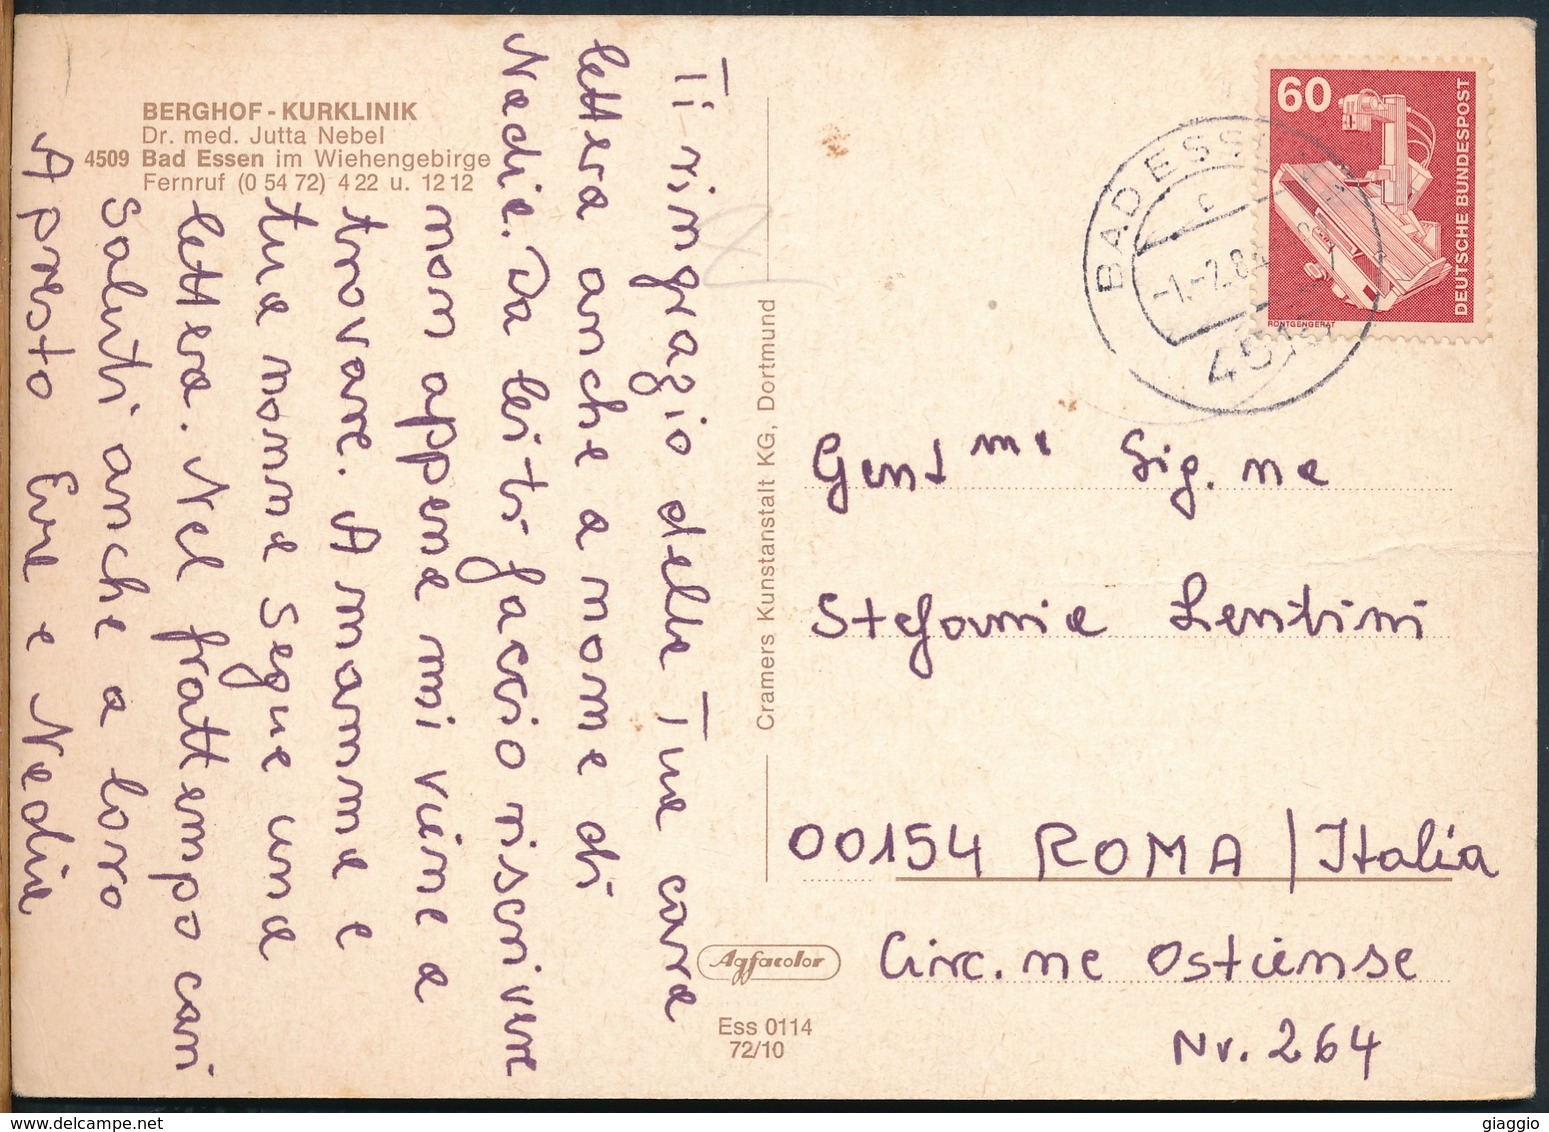 BERGHOF - KURKLINIK
Dr. med. Jutta Nebel
4509 Bad Essen im Wiehengebirge
Fernruf (0 54 72) 4 22 u. 12 12
Ti ringrazio della Tua cara
lettera anche a nome di
Nadia. Da lei ti faccio riscrivere
non appena mi viene a
trovare. A mamma e
tua nonna segue una
lettera. Nel frattempo cari
Saluti anche a loro
A presto Eva e Nadia
Cramers Kunstanstalt KG, Dortmund
Agfacolor
Ess 0114
72/10
60
DEUTSCHE BUNDESPOST
RÖNTGENGERÄT
BAD ESSEN
-1.-2.84
Gent.ma Sig.na
Stefania Lentini
00154 ROMA / Italia
Circ.ne Ostiense
Nr. 264
giaggio